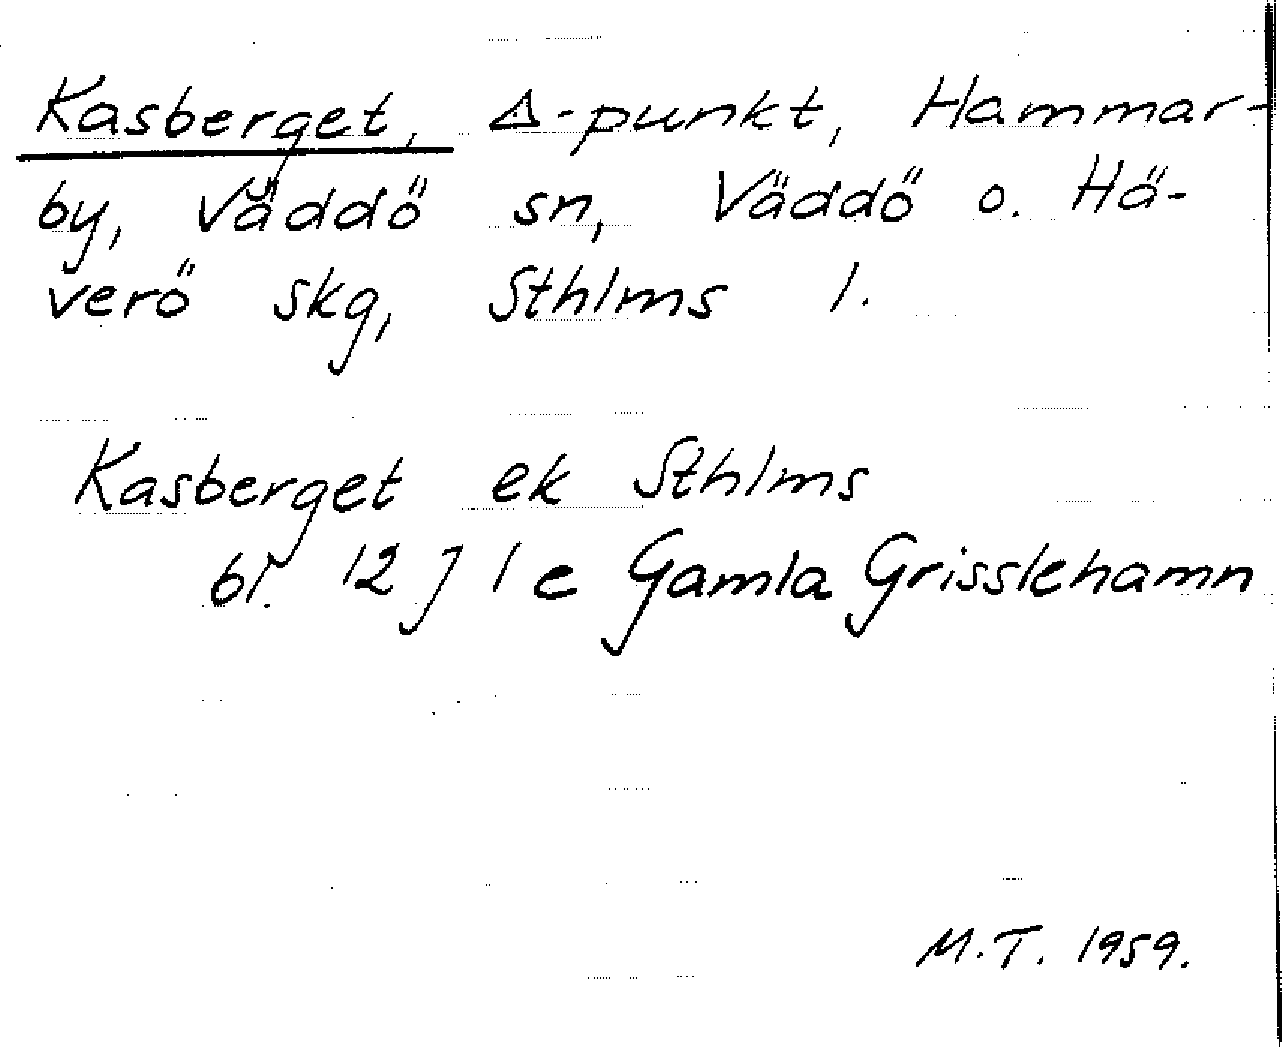 Kasberget, Δ-punkt, Hammar-
by, Väddö sn, Väddö o. Hä-
verö skg, Sthlms l.
Kasberget ek Sthlms
bl. 12 J 1 e Gamla Grisslehamn
M.T. 1959.